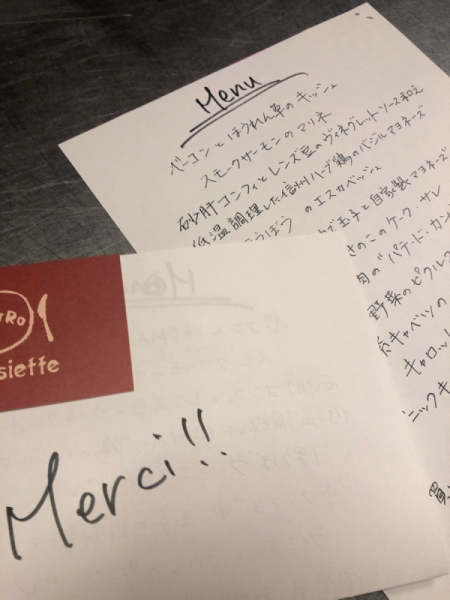 Menu
ベーコンとほうれん草のキッシュ
スモークサーモンのマリネ
砂肝コンフィとレンズ豆のヴィネグレットソース和え
低温調理した信州ハーブ鶏のバジルマヨネーズ
ごぼう のエスカベッシュ
で玉子と自家製マヨネーズ
きのこのケーク・サレ
肉の"パテ・ド・カン
野菜のピクルス
キャベツの
キャロット
ニックキ
TRO
siette
Merci!!